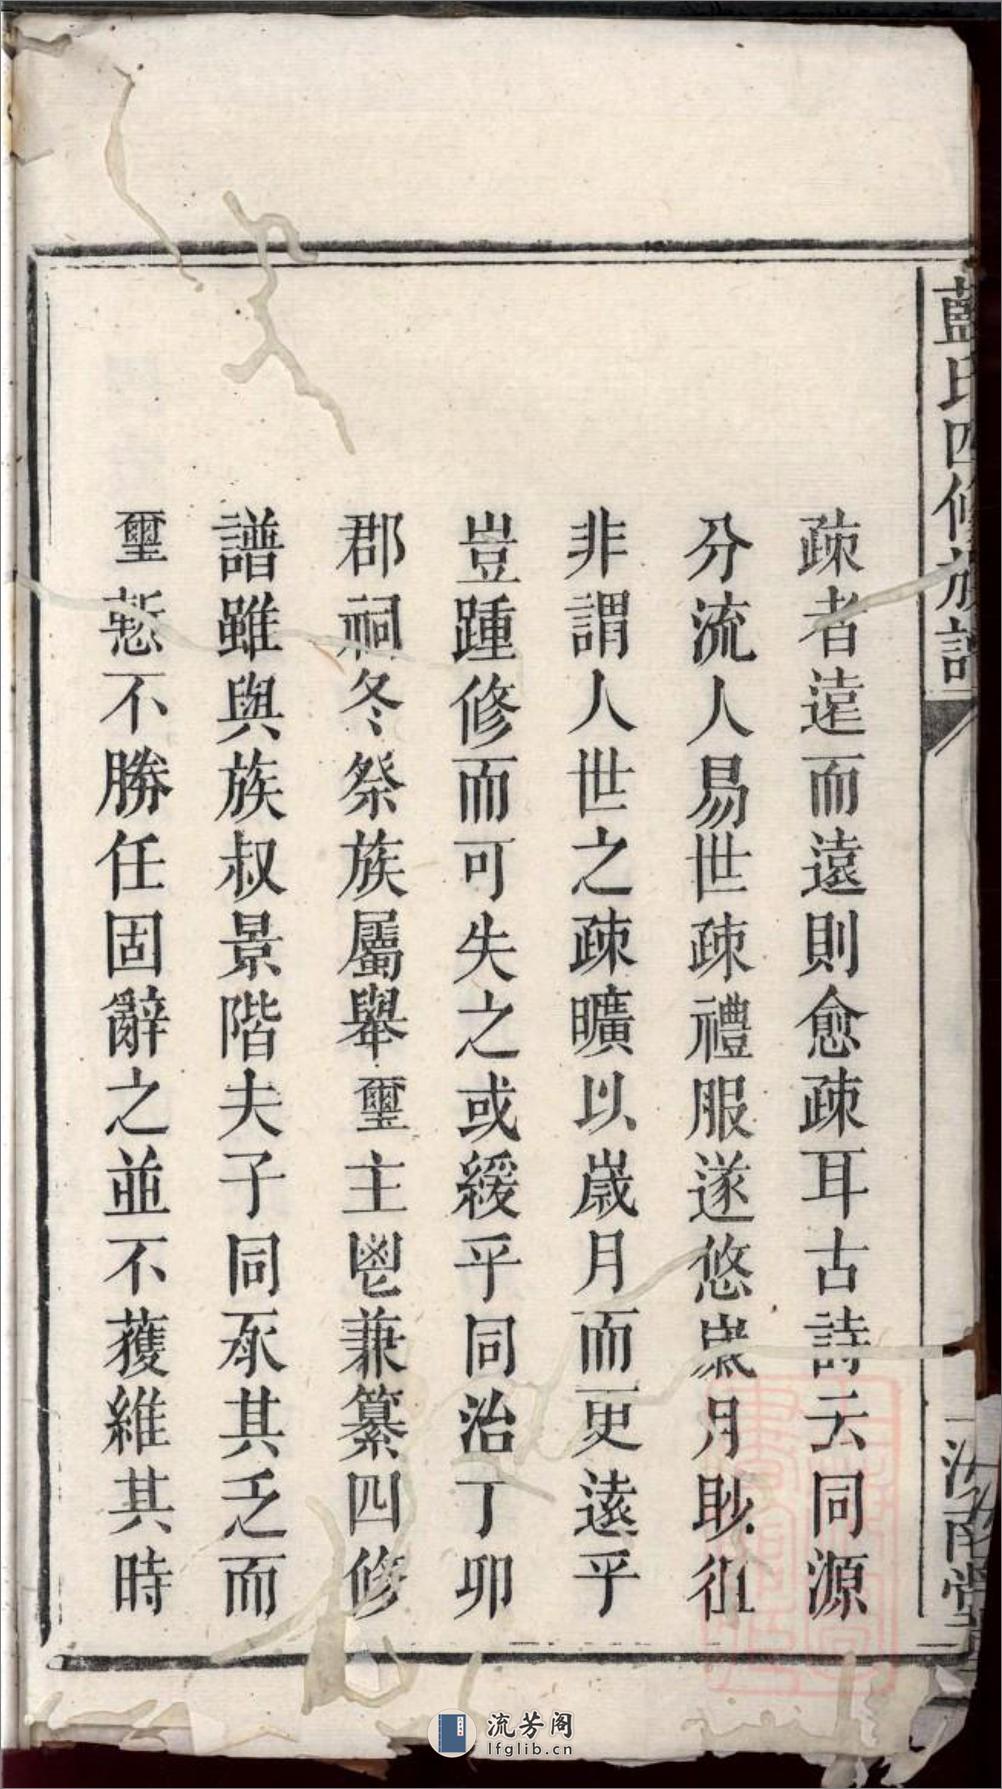 藍氏四修族譜
一 汝南堂
疎者遠而遠則愈疎耳古詩云同源
分流人易世疎禮服遂悠嵗月眇徂
非謂人世之疎曠以嵗月而更遠乎
豈踵修而可失之或緩乎同治丁卯
郡祠冬祭族屬舉璽主鬯兼纂四修
譜雖與族叔景階夫子同承其乏而
璽慙不勝任固辭之並不獲維其時
流芳阁
lfglib.cn